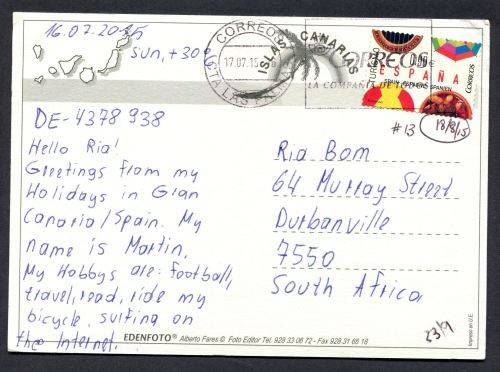 16.07.2015
sun, +30°
DE-4378938
Hello Ria!
Greetings from my
Holidays in Gran
Canaria/Spain. My
name is Martin.
My Hobbys are: football,
travel, read, ride my
bicycle, surfing on
the Internet.
CORREOS
17.07.15
LAS PALMAS
ISLAS CANARIAS
CORREOS
LA COMPAÑIA DE
TURISMO
€
ESPAÑA
CORREOS
#13
18/8/15
Ria Bom
64 Murray Street
Durbanville
7550
South Africa
23/9
EDENFOTO® Alberto Fares © Foto Editor Tel. 928 33 06 72 - Fax 928 31 66 18
Impreso en U.E.